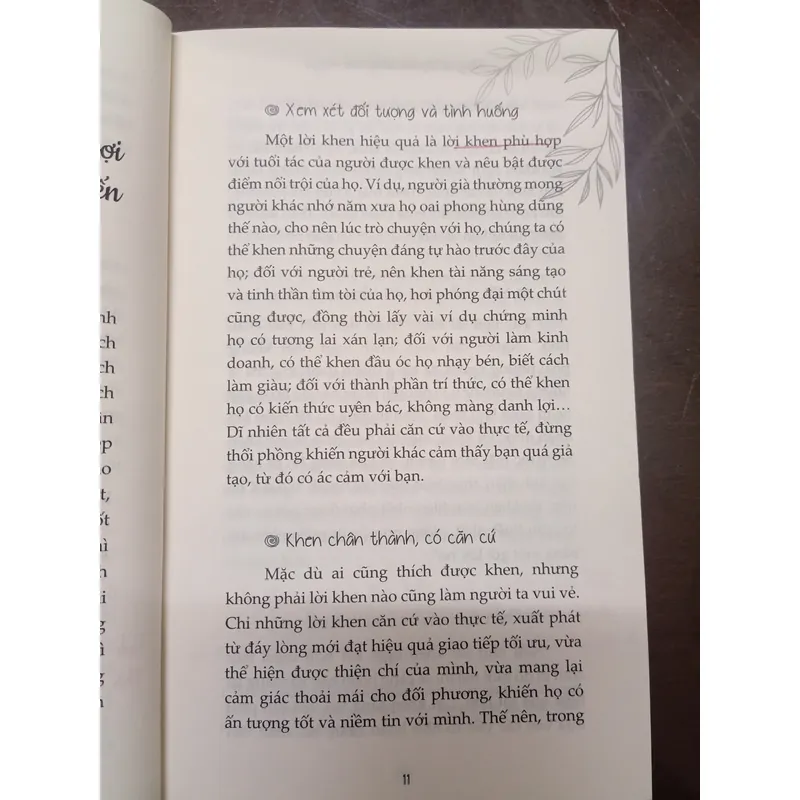 ợi
ến
nh
ch
ch
ch
in
ẹp
ao
t,
ốt
nì
n
i
g
ì
g
n
Xem xét đối tượng và tình huống
Một lời khen hiệu quả là lời khen phù hợp
với tuổi tác của người được khen và nêu bật được
điểm nổi trội của họ. Ví dụ, người già thường mong
người khác nhớ năm xưa họ oai phong hùng dũng
thế nào, cho nên lúc trò chuyện với họ, chúng ta có
thể khen những chuyện đáng tự hào trước đây của
họ; đối với người trẻ, nên khen tài năng sáng tạo
và tinh thần tìm tòi của họ, hơi phóng đại một chút
cũng được, đồng thời lấy vài ví dụ chứng minh
họ có tương lai xán lạn; đối với người làm kinh
doanh, có thể khen đầu óc họ nhạy bén, biết cách
làm giàu; đối với thành phần trí thức, có thể khen
họ có kiến thức uyên bác, không màng danh lợi…
Dĩ nhiên tất cả đều phải căn cứ vào thực tế, đừng
thổi phồng khiến người khác cảm thấy bạn quá giả
tạo, từ đó có ác cảm với bạn.
Khen chân thành, có căn cứ
Mặc dù ai cũng thích được khen, nhưng
không phải lời khen nào cũng làm người ta vui vẻ.
Chỉ những lời khen căn cứ vào thực tế, xuất phát
từ đáy lòng mới đạt hiệu quả giao tiếp tối ưu, vừa
thể hiện được thiện chí của mình, vừa mang lại
cảm giác thoải mái cho đối phương, khiến họ có
ấn tượng tốt và niềm tin với mình. Thế nên, trong
11